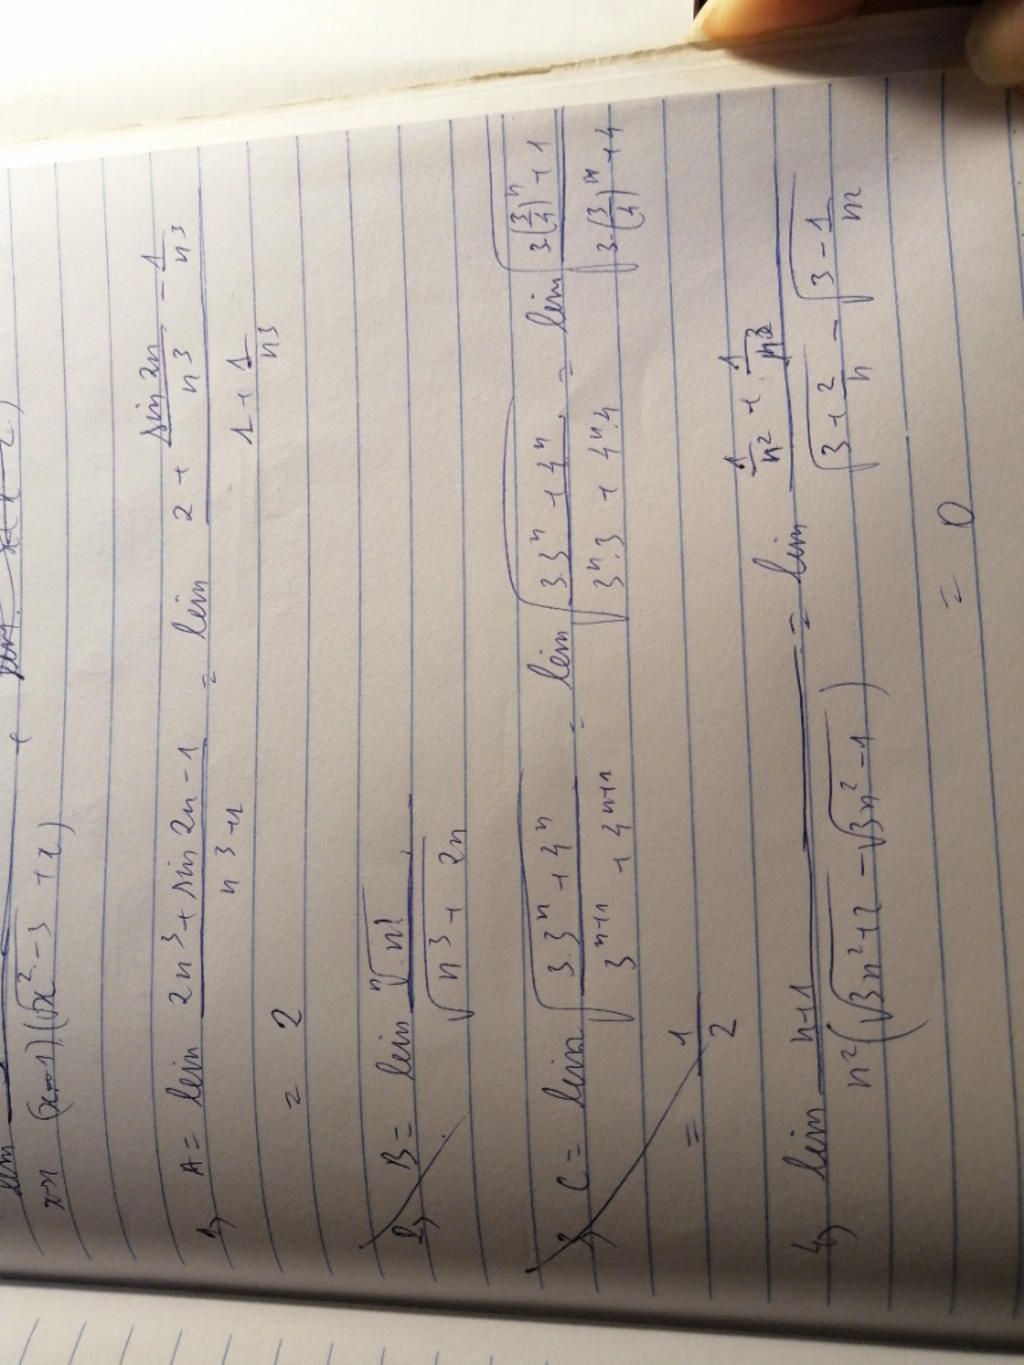 lim
x→1 (x-1)(√(x²-3) + x)
1, A = lim (2n³ + sin 2n - 1)/(n³+1) = lim (2 + sin 2n/n³ - 1/n³)/(1 + 1/n³)
= 2
2, B = lim ⁿ√n! / √(n³ + 2n)
3, C = lim √(3.3ⁿ + 4ⁿ)/√(3ⁿ⁺¹ + 4ⁿ⁺¹) = lim √(3.3ⁿ + 4ⁿ)/√(3ⁿ.3 + 4ⁿ.4) = lim √(3.(3/4)ⁿ + 1)/√(3.(3/4)ⁿ + 4)
= 1/2
4, lim (n+1)/(n²(√(3n²+2) - √(3n²-1))) = lim (1/n² + 1/n³)/(√(3 + 2/n) - √(3 - 1/n))
= 0